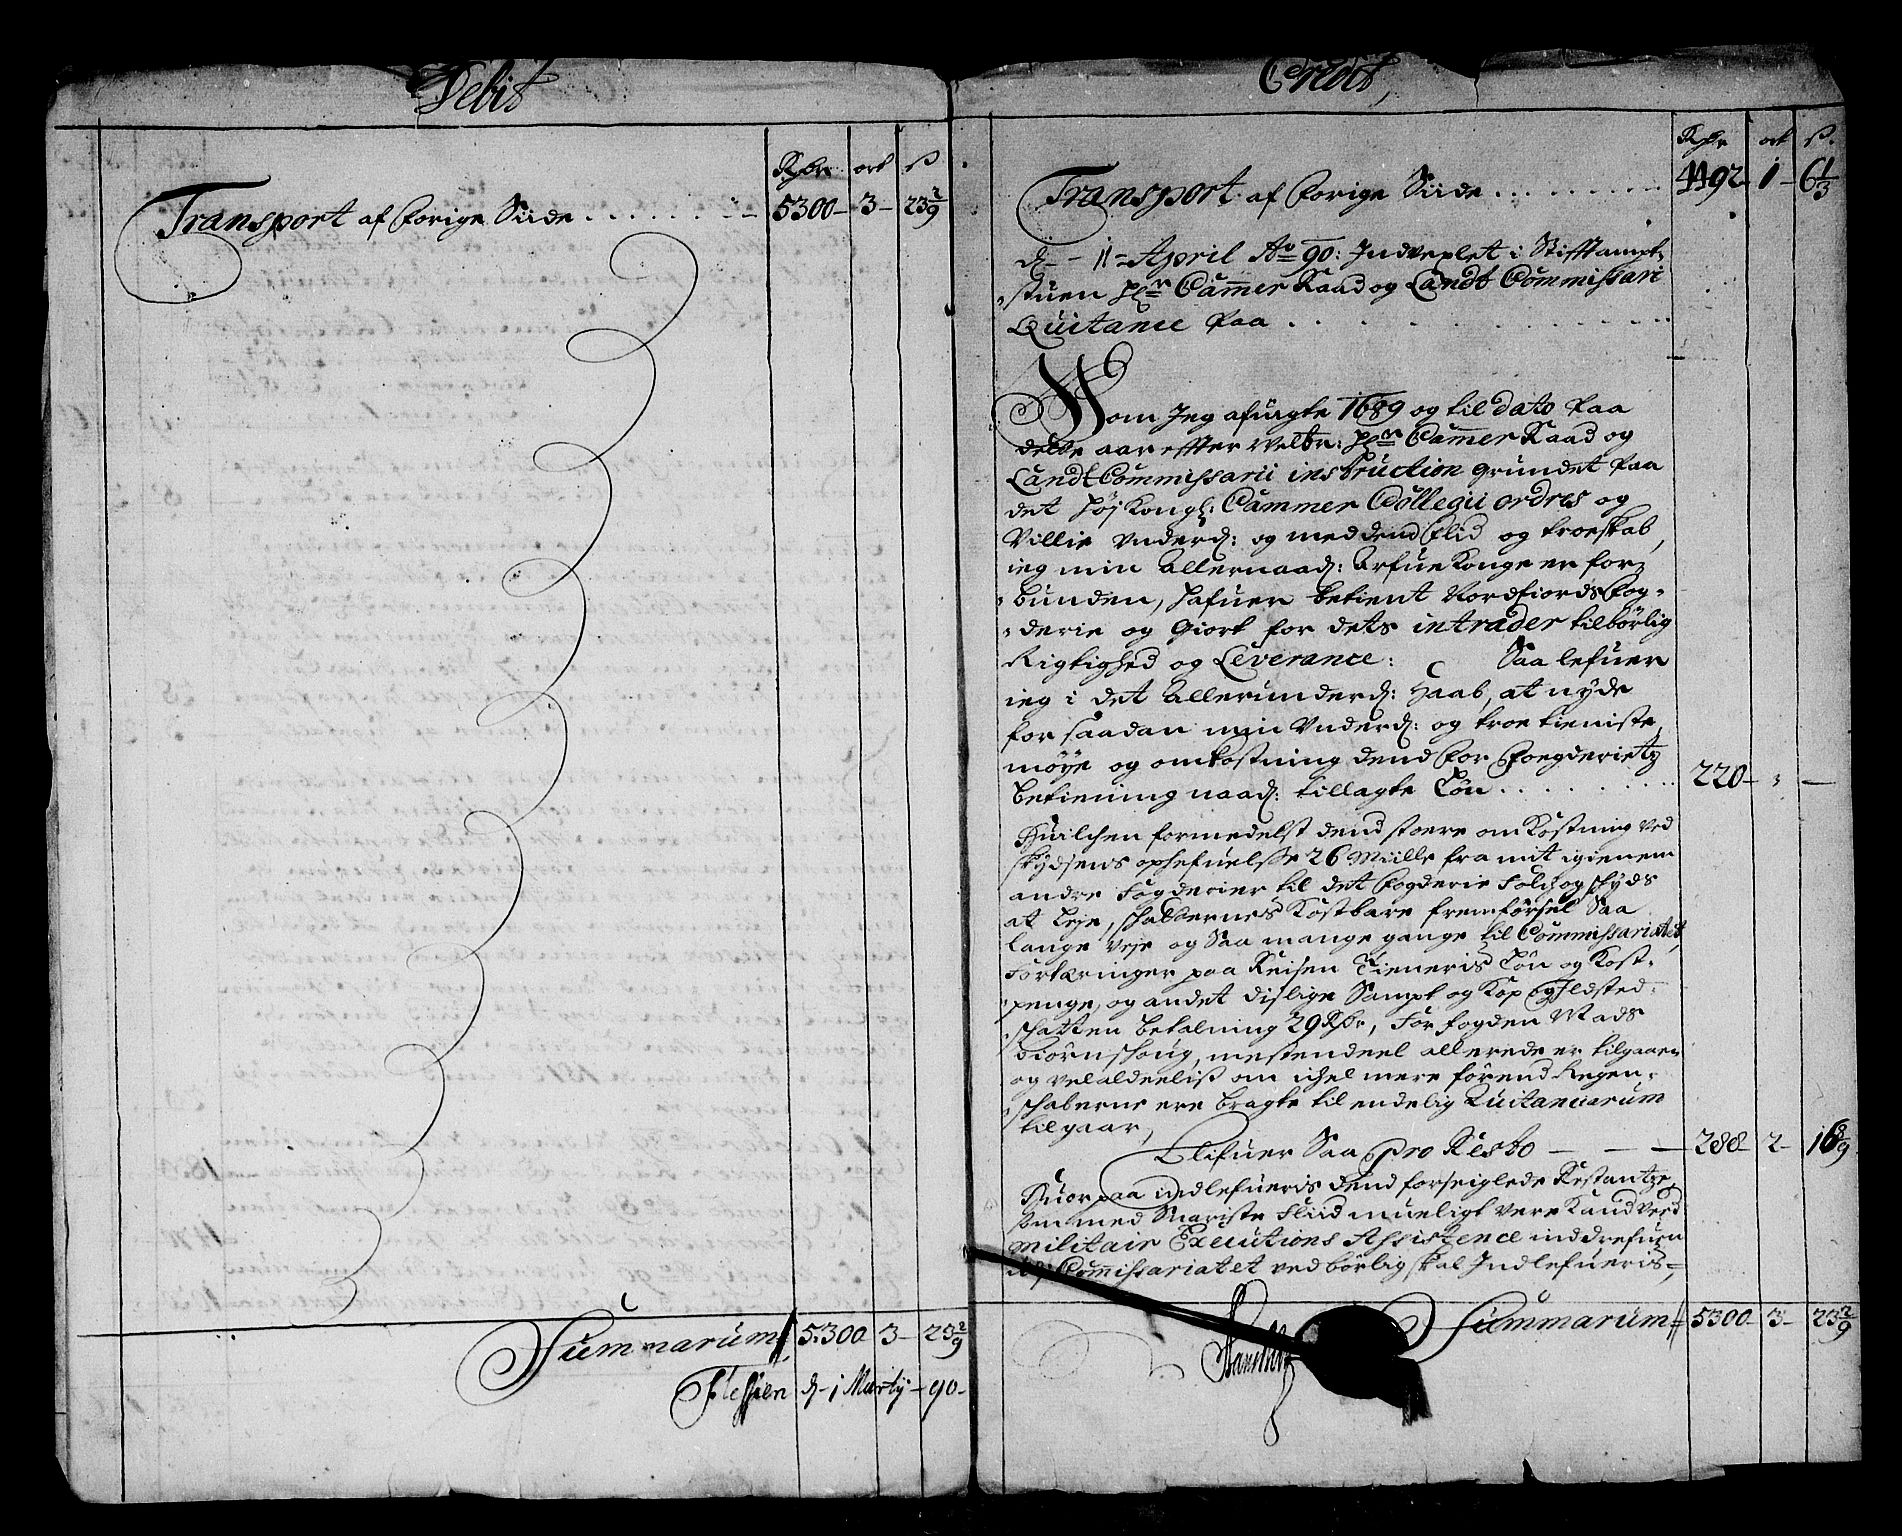 Debit
Rdr ort ß
Transport af Forige Siide . . . . . . . 5300 - 3 - 23 2/9
Summarum 5300 3 - 23 2/9
Flessien d. 1 Martij - 90 -
Credit,
Rdr ort ß.
Transport af Forige Siide . . . . . . . . 4492 - 1 - 6 1/3
d. 11 April Ao 90: Indvexlet i Stifftampt-
stuen Hr Cammer Raad og Landt Commissari
Quitance paa . . . . . . . .
Som Jeg afvigte 1689 og til dato paa
dette aar effter Welbr: Hr Cammer Raad og
Landt Commissarii instruction grundet paa
det høj Kongl: Cammer Collegii ordres og
Villie underd: og med dend Flid og troeskab,
ieg min Allernaad: Arfue Konge er for-
bunden, hafuer betient Nordfiords Fog-
derie og giort for dets intrader tilbørlig
Rigtighed og Leverance: Saa lefuer
ieg i det Allerunderd: Haab, at nyde
for saadan min Underd: og troe tieniste
møye og omkostning dend For Foegderietz
betiening naad: tillagte Løn . . . . . . . 220 - " -
Huilchen formedelst dend stoere omkostning ved
skydsens ophefuelsse 26 Miille fra mit igienem
andre Fogderier til det Fogderie Folch og skyds
at Leje, skatternes Kostbare fremførsel Saa
lange Veje og Saa mange gange til Commissariatet,
Fortæringer paa Reisen Tieneris Løn og Kost-
penge, og andet dislige Sampt og Kop og Ildsted-
skatten betalning 29 Rdr, For fogden Mads
Biørnshoug, mestendeel allerede er tilgaaen
og vel aldeelis om ichel mere førend Regen-
skaberne ere bragte til endelig Quitantiarum
tilgaar,
Blifuer Saa pro Resto - - - 288 - 2 - 16 8/9
Huorpaa indlefueris dend forseiglede Restantze,
som med Snariste Fliid mueligt vere Kand ved
Militair Executions Assistence inddrefuen
Commissariatet ved børlig skal Indlefueris,
Summarum 5300 - 3 - 23 2/9